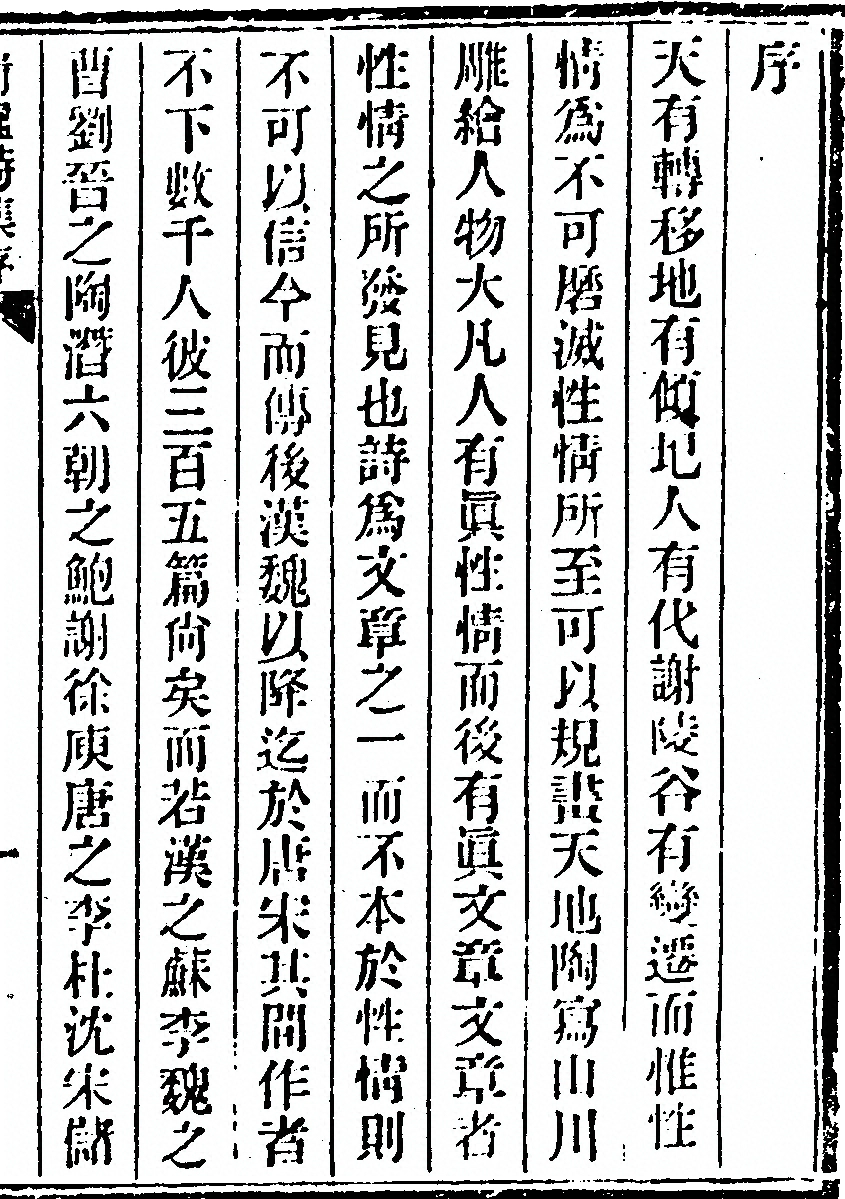 序
天有轉移地有傾圮人有代謝陵谷有變遷而惟性
情爲不可磨滅性情所至可以規畫天地陶寫山川
雕繪人物大凡人有眞性情而後有眞文章文章者
性情之所發見也詩爲文章之一而不本於性情則
不可以信今而傳後漢魏以降迄於唐宋其間作者
不下數千人彼三百五篇尙矣而若漢之蘇李魏之
曹劉晉之陶潛六朝之鮑謝徐庾唐之李杜沈宋儲
詩集序
一